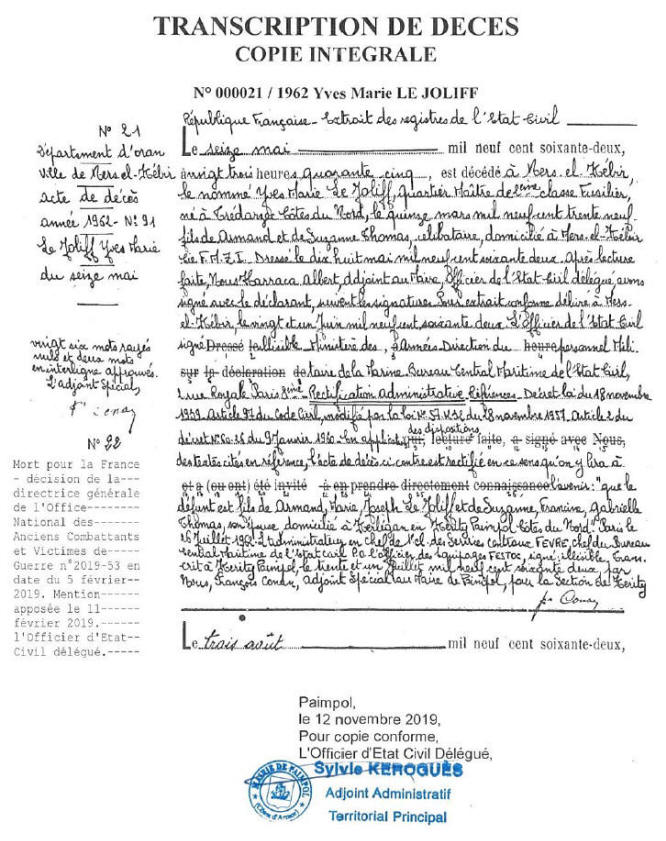 TRANSCRIPTION DE DECES
COPIE INTEGRALE
N° 000021 / 1962 Yves Marie LE JOLIFF
N° 21
Département d'oran
ville de Mers el-Hébir
acte de décès
année 1962 - N° 91
Le Joliff Yves Marie
du seize mai
vingt six mots rayés
nuls et deux mots
en interligne approuvés.
L'adjoint Spécial,
N° 22
Mort pour la France
- décision de la---
directrice générale
de l'Office--------
National des-------
Anciens Combattants
et Victimes de-----
Guerre n°2019-53 en
date du 5 février--
2019. Mention------
apposée le 11------
février 2019.------
l'Officier d'Etat--
Civil délégué.-----
République Française - Extrait des registres de l'Etat-Civil
Le seize mai mil neuf cent soixante-deux,
à vingt trois heures quarante cinq, est décédé à Mers-el-Kébir,
le nommé Yves Marie Le Joliff, quartier Maître de 2ème classe Fusilier,
né à Trédarzec Côtes du Nord, le quinze mars mil neuf cent trente neuf
fils de Armand et de Suzanne Thomas, célibataire, domicilié à Mers-el-Kébir
Cie F.M.Z.I. Dressé le dix huit mai mil neuf cent soixante deux. Après lecture
faite, Nous Karraca Albert, adjoint au Maire, Officier de l'Etat-Civil délégué avons
signé avec le déclarant, suivent les signatures. Pour extrait conforme délivré à Mers-
el-Kébir, le vingt et un Juin mil neuf cent soixante deux. L'Officier de l'Etat-Civil
signé Dressé illisible. Ministère des Armées - Direction du heure personnel Mili-
sur la déclaration de taire de la Marine. Bureau Central Maritime de l'Etat Civil,
2 rue Royale Paris 8ème. Rectification administrative. Références - Décret Loi du 18 novembre
1939 - Article 97 du Code Civil, modifié par la loi N° 57.1232 du 28 novembre 1957. Article 2 du
des dispositions
décret N° 60.36 du 9 Janvier 1960 - En applicat. qui, lecture faite, a signé avec Nous,
des textes cités en référence, l'acte de décès ci contre est rectifié en ce sens qu'on y lira à
et a (ou ont) été invité à en prendre directement connaissance l'avenir : "que le
défunt est fils de Armand, Marie, Joseph Le Joliff et de Suzanne, Francine, Gabrielle
Thomas, son épouse domiciliés à Kerligan en Kérity Paimpol Côtes du Nord." Paris le
26 Juillet 1962. L'administrateur en chef de 1ère cl. des Services centraux FEVRE, chef du Bureau
Central Maritime de l'Etat civil P.O. l'officier des équipages FESTOC, signé, illisible. Trans-
crit à Kérity Paimpol, le trente et un Juillet mil neuf cent soixante deux, par
Nous, François Conan, adjoint Spécial au Maire de Paimpol, pour la Section de Kérity
Le trois août mil neuf cent soixante-deux,
Paimpol,
le 12 novembre 2019,
Pour copie conforme,
L'Officier d'Etat Civil Délégué,
Sylvie KEROGUÈS
Adjoint Administratif
Territorial Principal
MAIRIE DE PAIMPOL
(Côtes d'Armor)